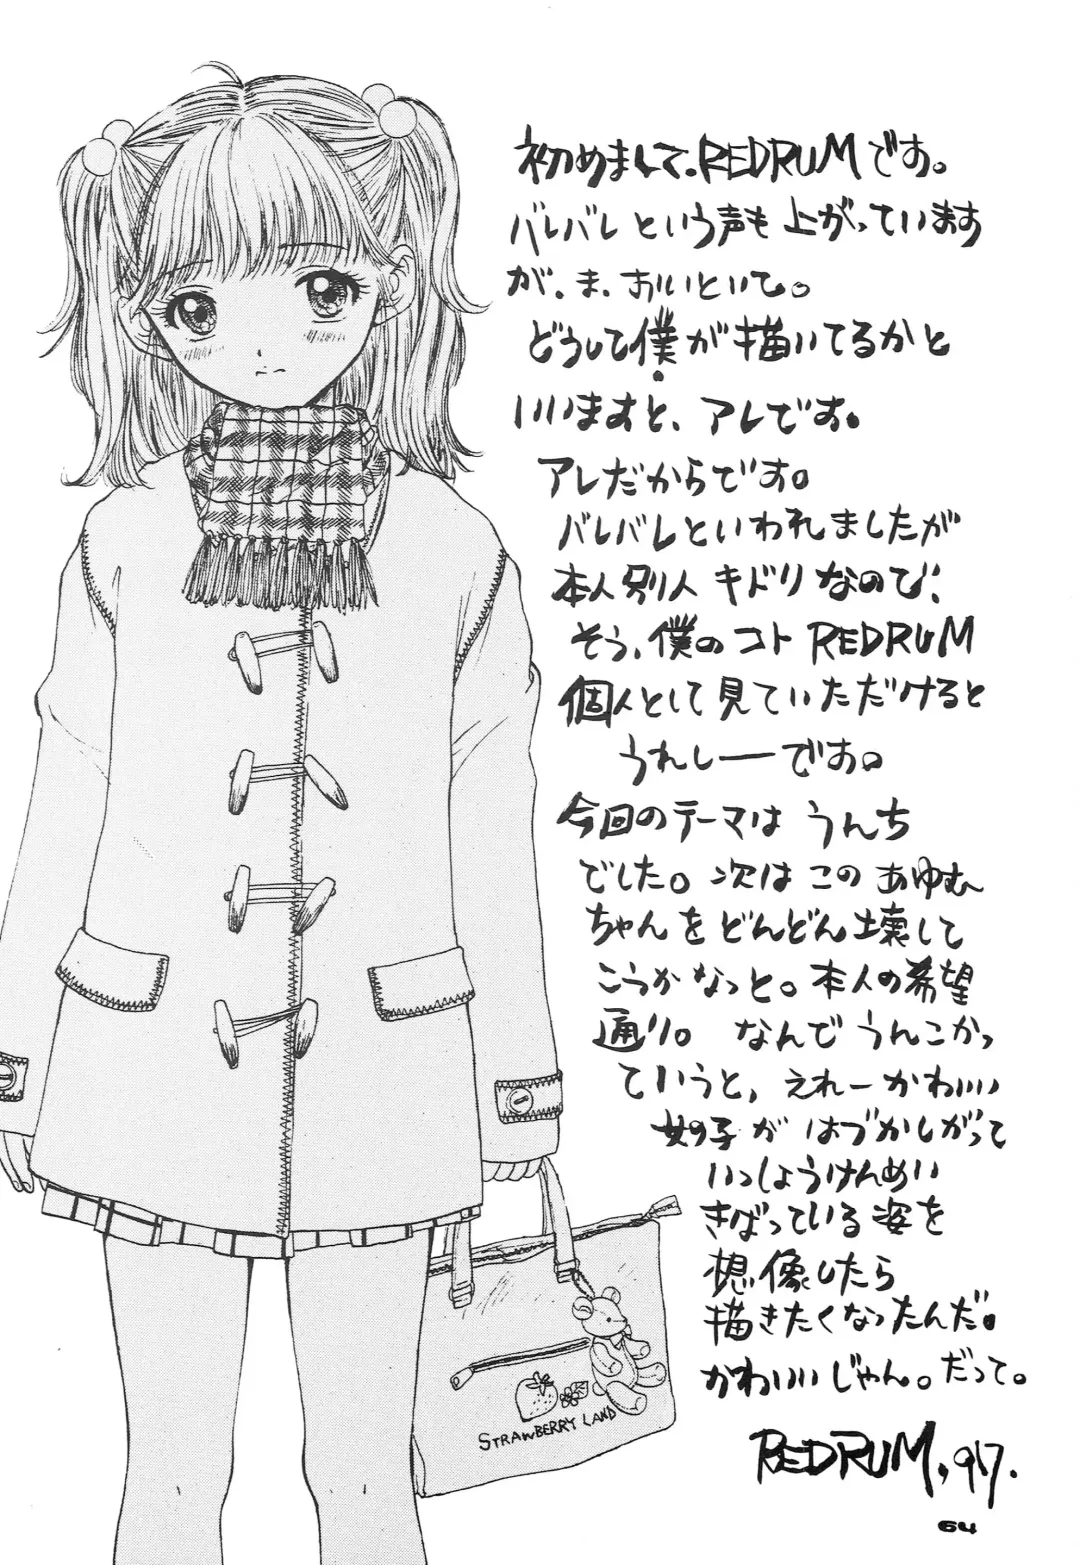 初めまして.REDRUMです。
バレバレという声も上がっています
が、ま、おいといて。
どうして僕が描いてるかと
いいますと、アレです。
アレだからです。
バレバレといわれましたが
本人別人キドリなので、
そう、僕のコト REDRUM
個人として見ていただけると
うれしーーです。
今回のテーマは うんち
でした。次は この あゆむ
ちゃんを どんどん壊して
こうかなっと。本人の希望
通り。 なんで うんこかっ
ていうと、えれーかわいい
女の子が はづかしがって
いっしょうけんめい
きばっている姿を
想像したら
描きたくなったんだ。
かわいいじゃん。だって。
REDRUM, 97.
STRAWBERRY LAND
64